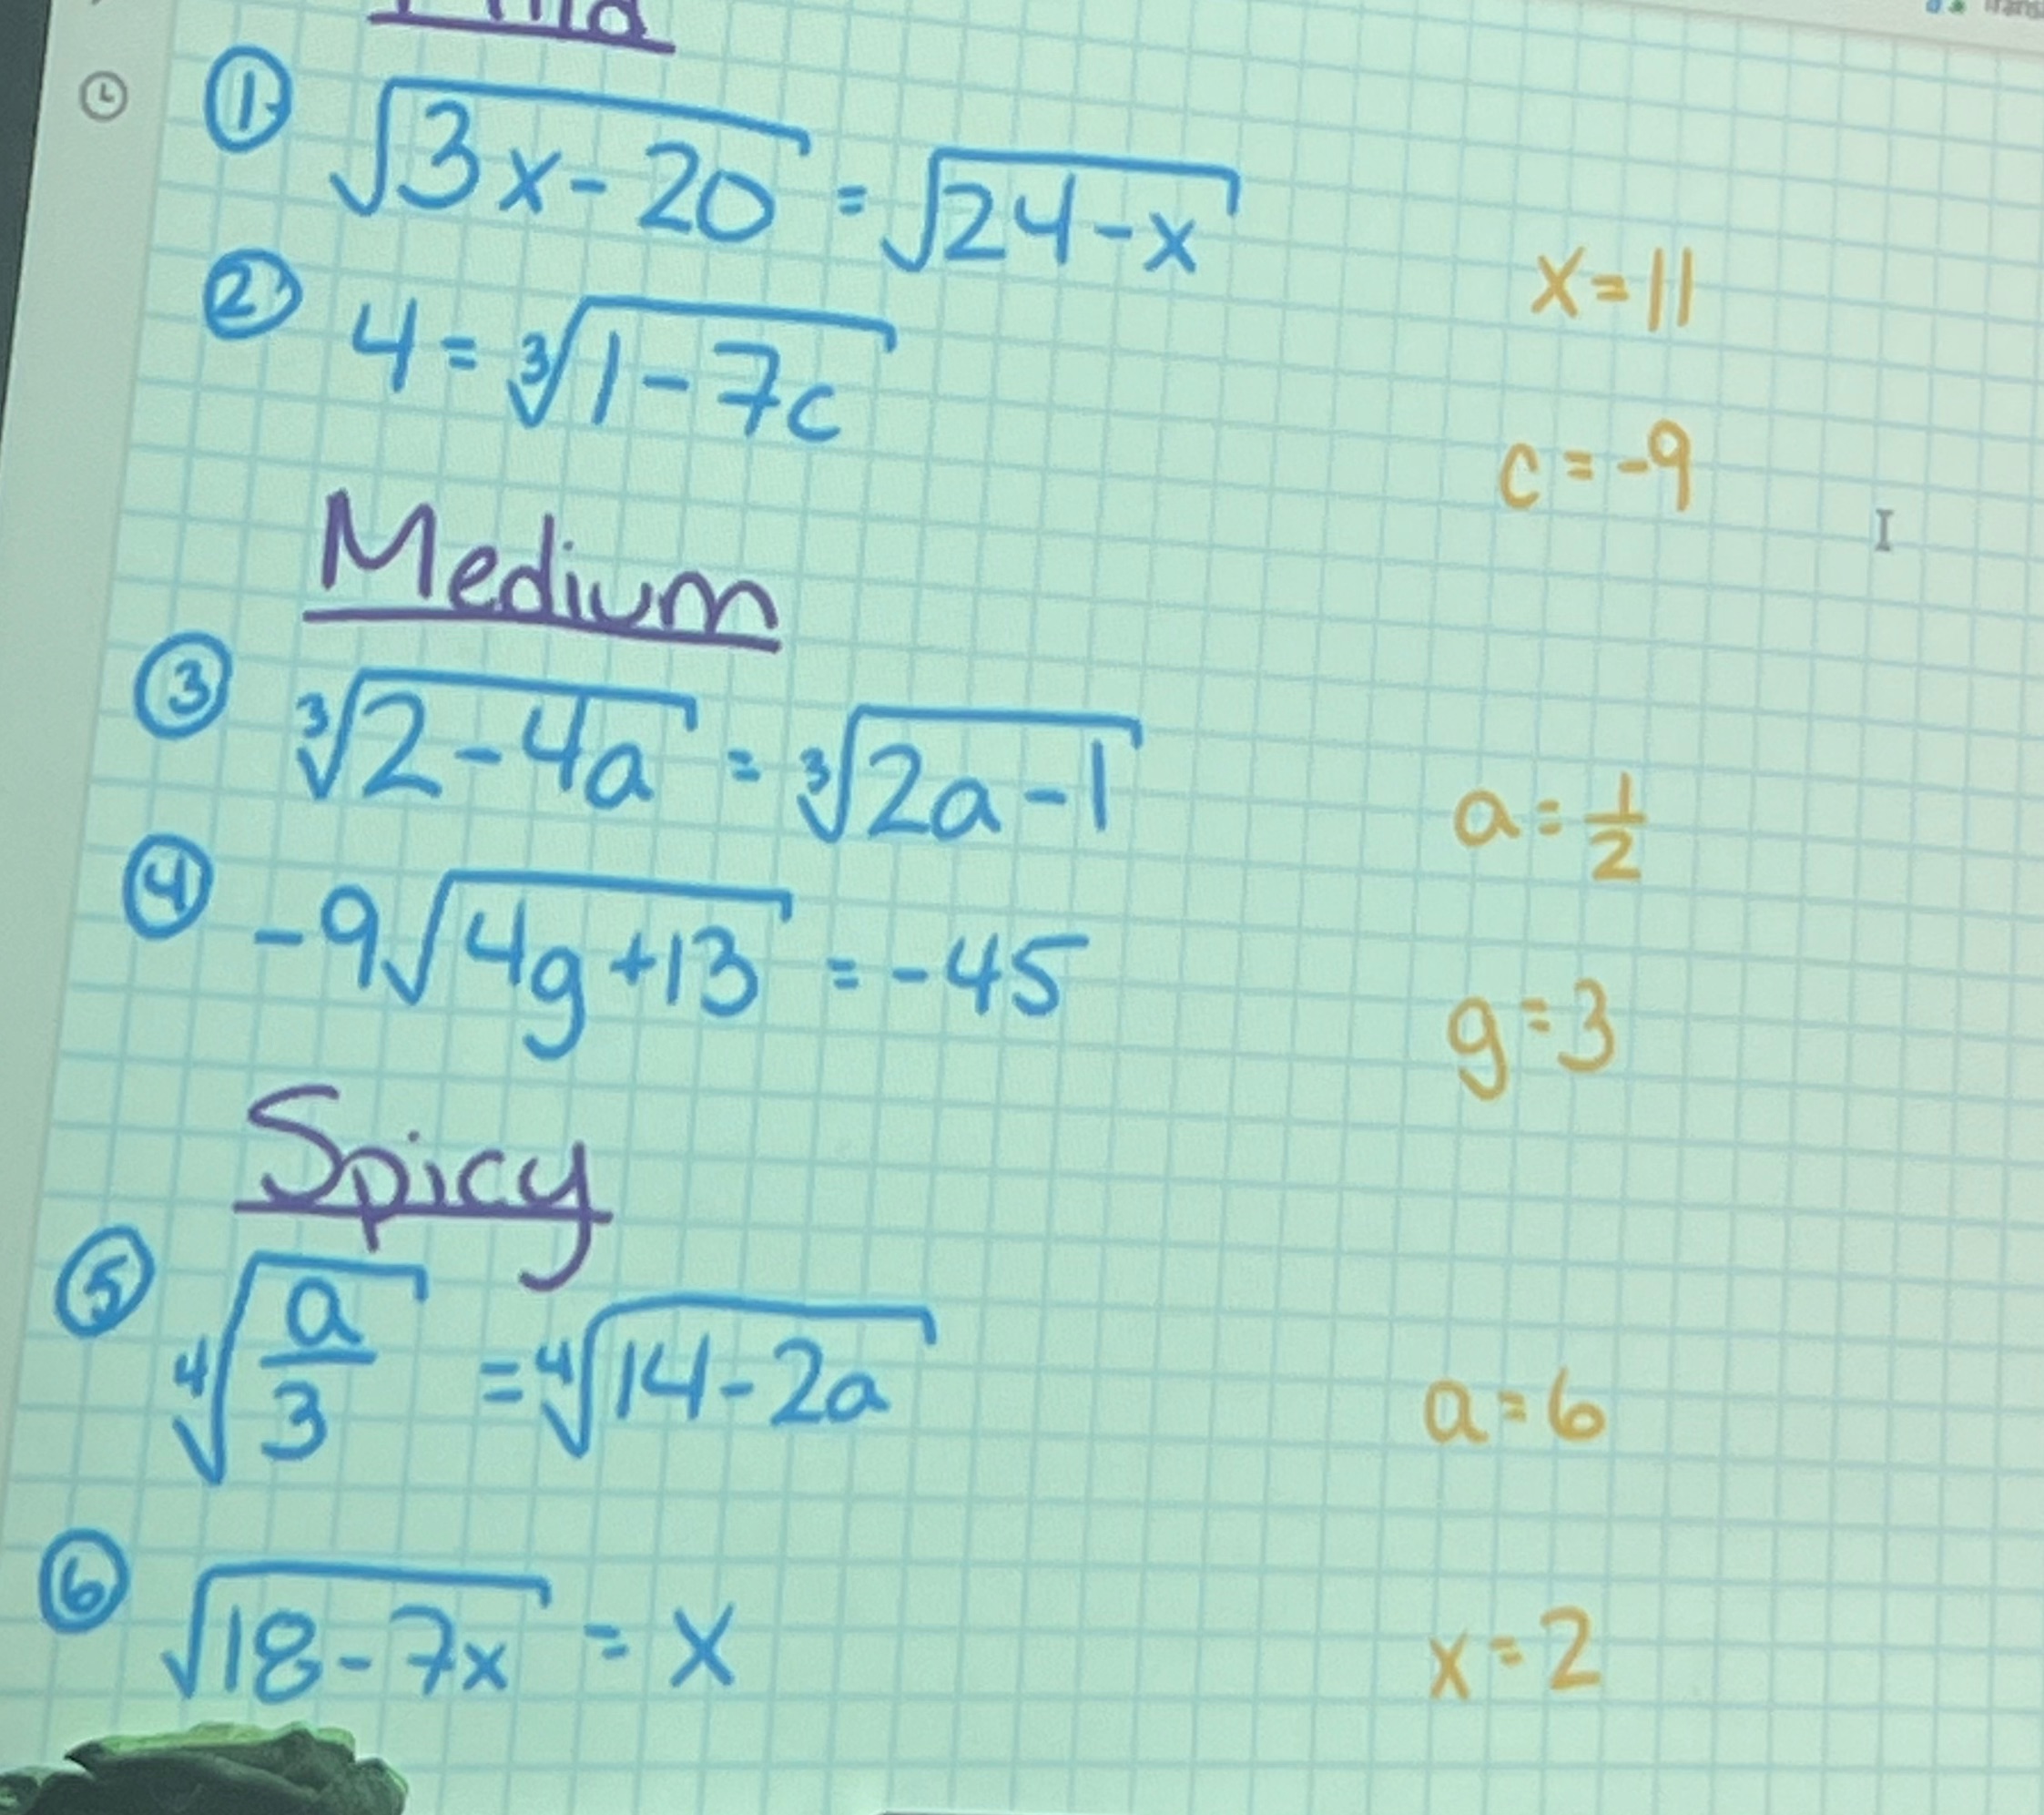 ① √3x-20 = √24-x
x=11
② 4 = ³√1-7c
c = -9
Medium
③ ³√2-4a = ³√2a-1
a = 1/2
④ -9√4g+13 = -45
g=3
Spicy
⑤ ⁴√a/3 = ⁴√14-2a
a=6
⑥ √18-7x = x
x=2